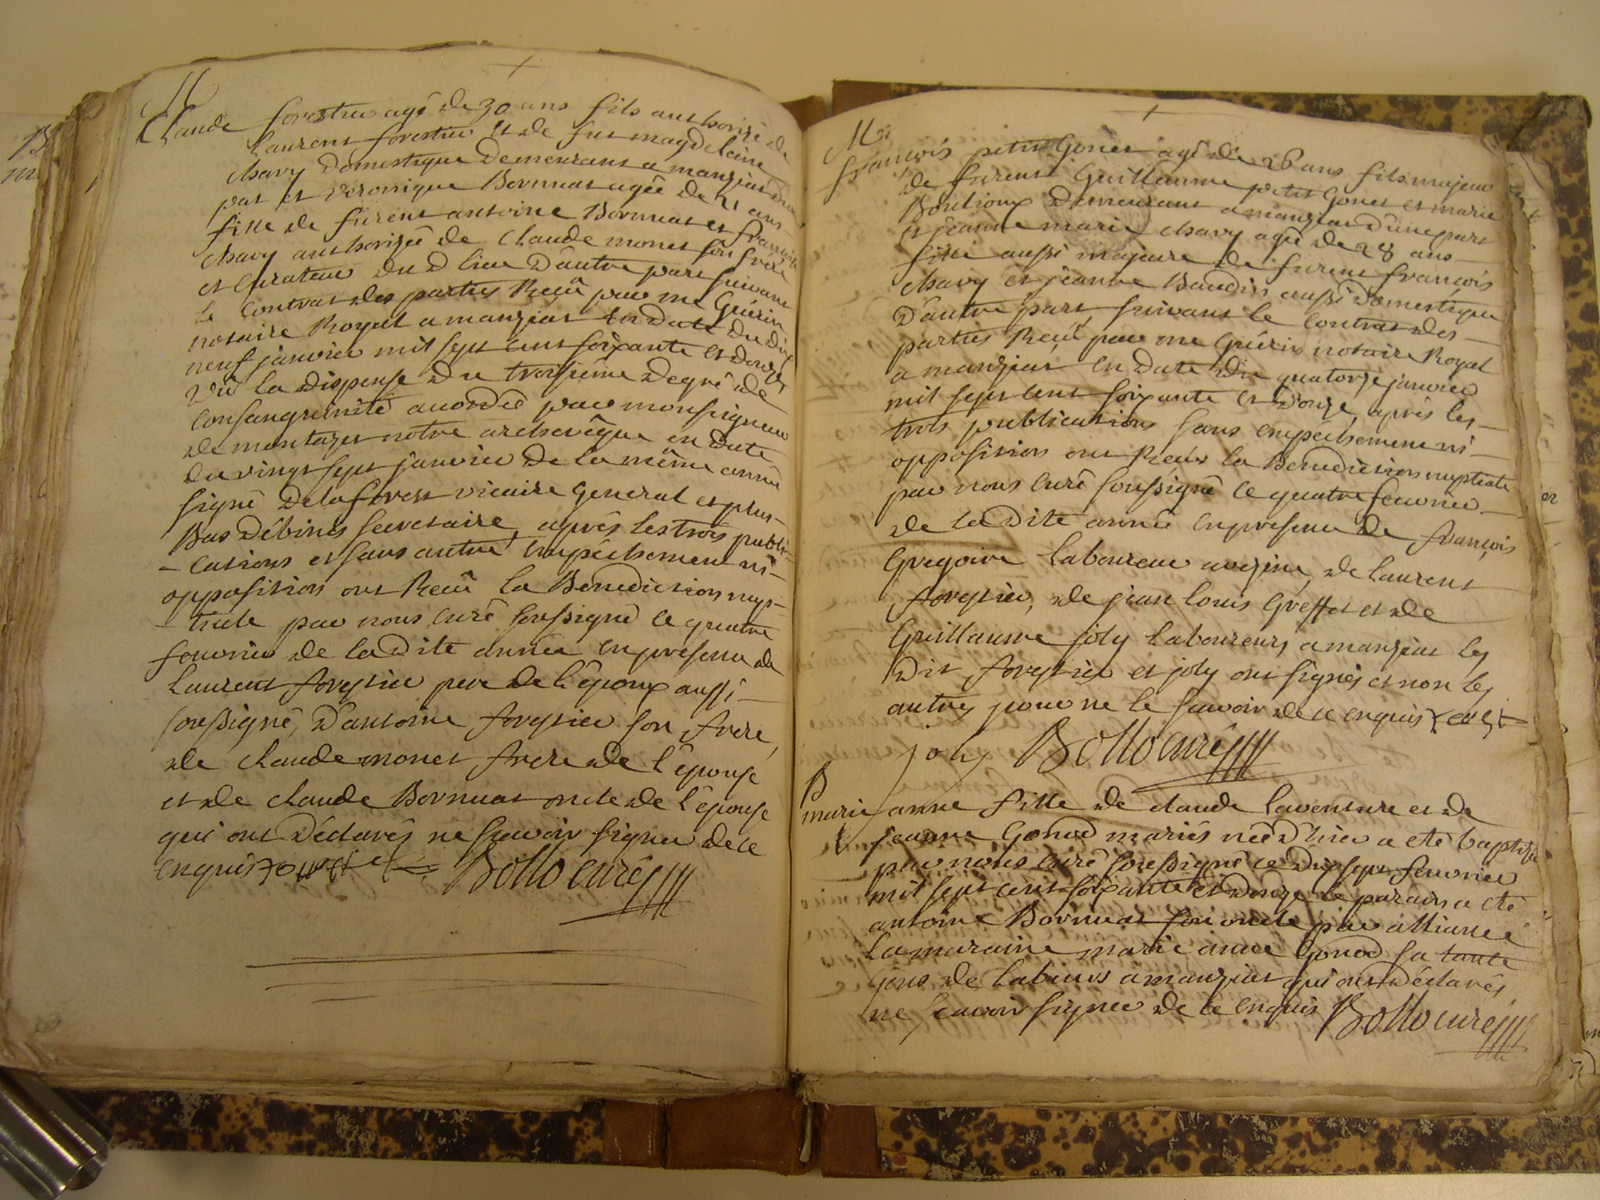 M
Claude forestier agé de 30 ans fils authorizé de
laurent forestier et de fue magdelaine
chavy domestique demeurant a manziat d'une
part et veronique Bornuat agée de 21 ans
fille de furent antoine Bornuat et françoise
chavy authorizée de claude monet son frere
et Curateur du d lieu d'autre part suivant
le Contrat des parties Reçû par me Guérin
notaire Royal a manziat en date du dix
neuf janvier mil sept cent soixante et douze
vû la dispense du troisieme degré de
Consanguinité accordée par monseigneur
de montazet notre archevêque en date
du vingt sept janvier de la même année
signé Delaforest vicaire general et plus
Bas Débinés secretaire, après les trois publi-
-cations et sans autre empêchement ni
opposition ont Recû la Benediction nup-
-tiale par nous curé soussigné le quatre
fevrier de la dite année en presence de
laurent forestier pere de l'époux aussi
soussigné, d'antoine forestier son frere,
de claude monet frere de l'épouse
et de claude Bornuat oncle de l'épouse
qui ont déclarés ne savoir signer de ce
enquis
Bollo curé
M
françois petit Gonet agé de 26 ans fils majeur
de furent Guillaume petit Gonet et marie
Boulioux demeurant a manziat d'une part
et jeanne marie chavy agée de 28 ans
fille aussi majeure de furent françois
chavy et jeanne Baudin aussi domestique
d'autre part suivant le Contrat des
parties Reçû par me Guérin notaire Royal
a manziat en date du quatorze janvier
mil sept cent soixante et douze, après les
trois publications sans empêchement ni
opposition ont Recûs la Benediction nuptiale
par nous curé soussigné le quatre fevrier
de la dite année en presence de françois
Gregoire laboureur, de laurent
forestier, de jean louis Greffet et de
Guillaume joly laboureurs a manziat les
dit forestier et joly ont signés et non les
autres pour ne le savoir de ce enquis
joly Bollo curé
B
marie anne fille de claude laventure et de
jeanne Gonod mariés née d'hier a eté baptisée
par nous curé soussigné ce dix sept fevrier
mil sept cent soixante et douze le parain a eté
antoine Bornuat son oncle par alliance
la maraine marie anne Gonod sa tante
gens de labeurs a manziat qui ont déclarés
ne scavoir signer de ce enquis Bollo curé